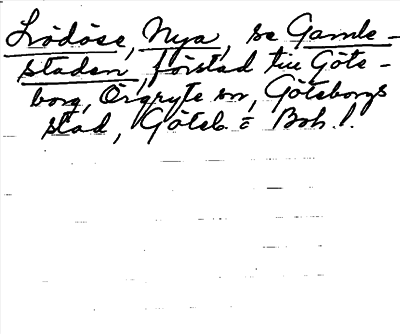 Lödöse, Nya, se Gamle-
staden, förstad till Göte-
borg, Örgryte sn, Göteborgs
stad, Göteb = Boh. l.